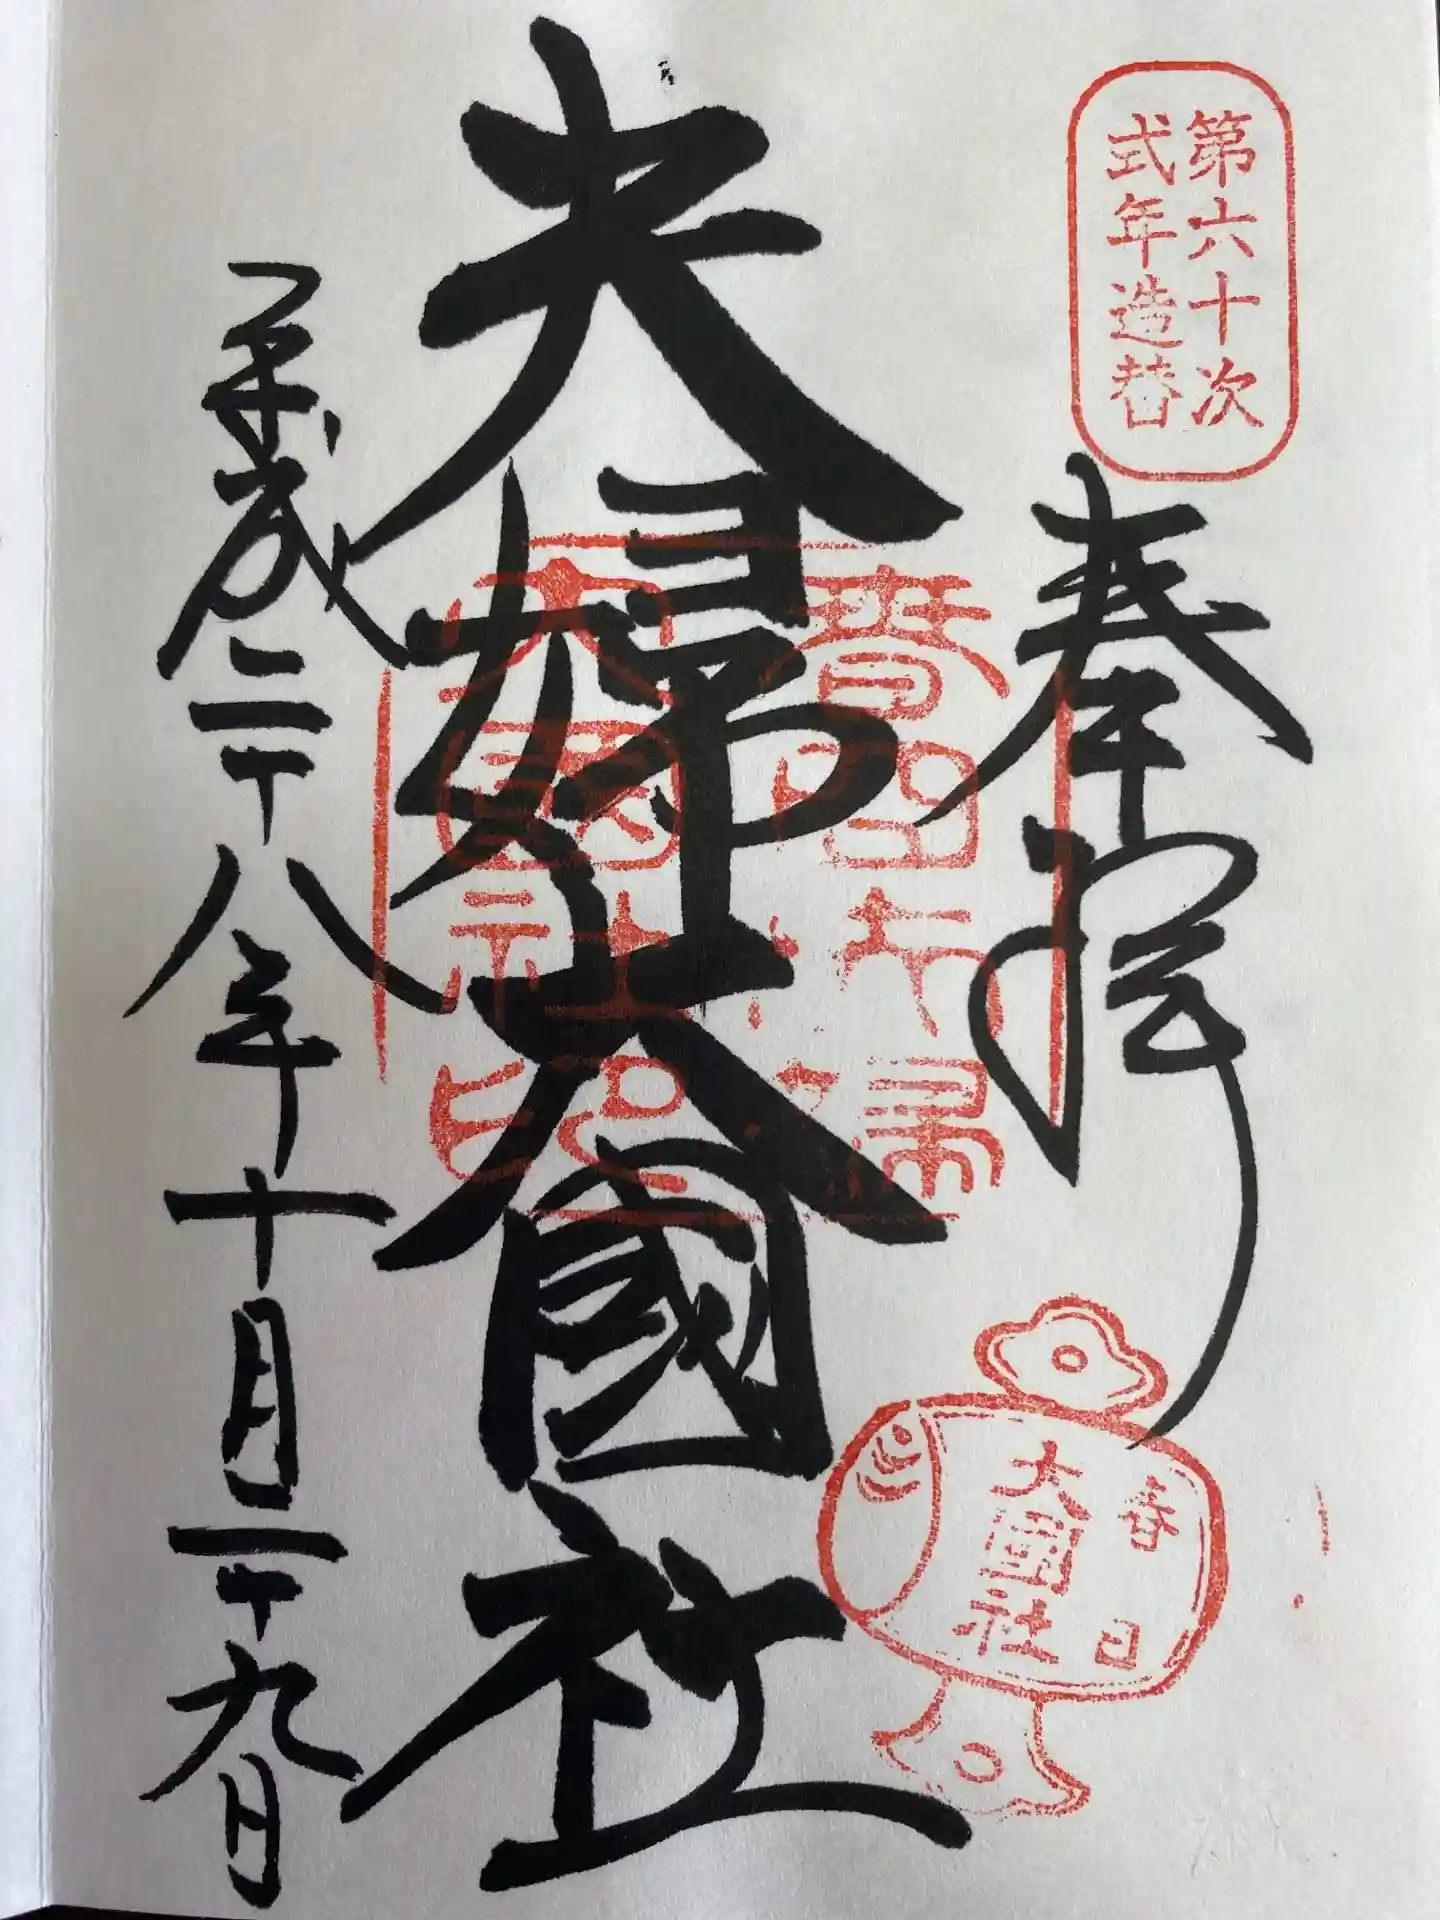 第六十次
式年造替
奉拝
夫婦大國社
春日夫婦
大國社印
春日
大國社
平成二十八年十月二十九日